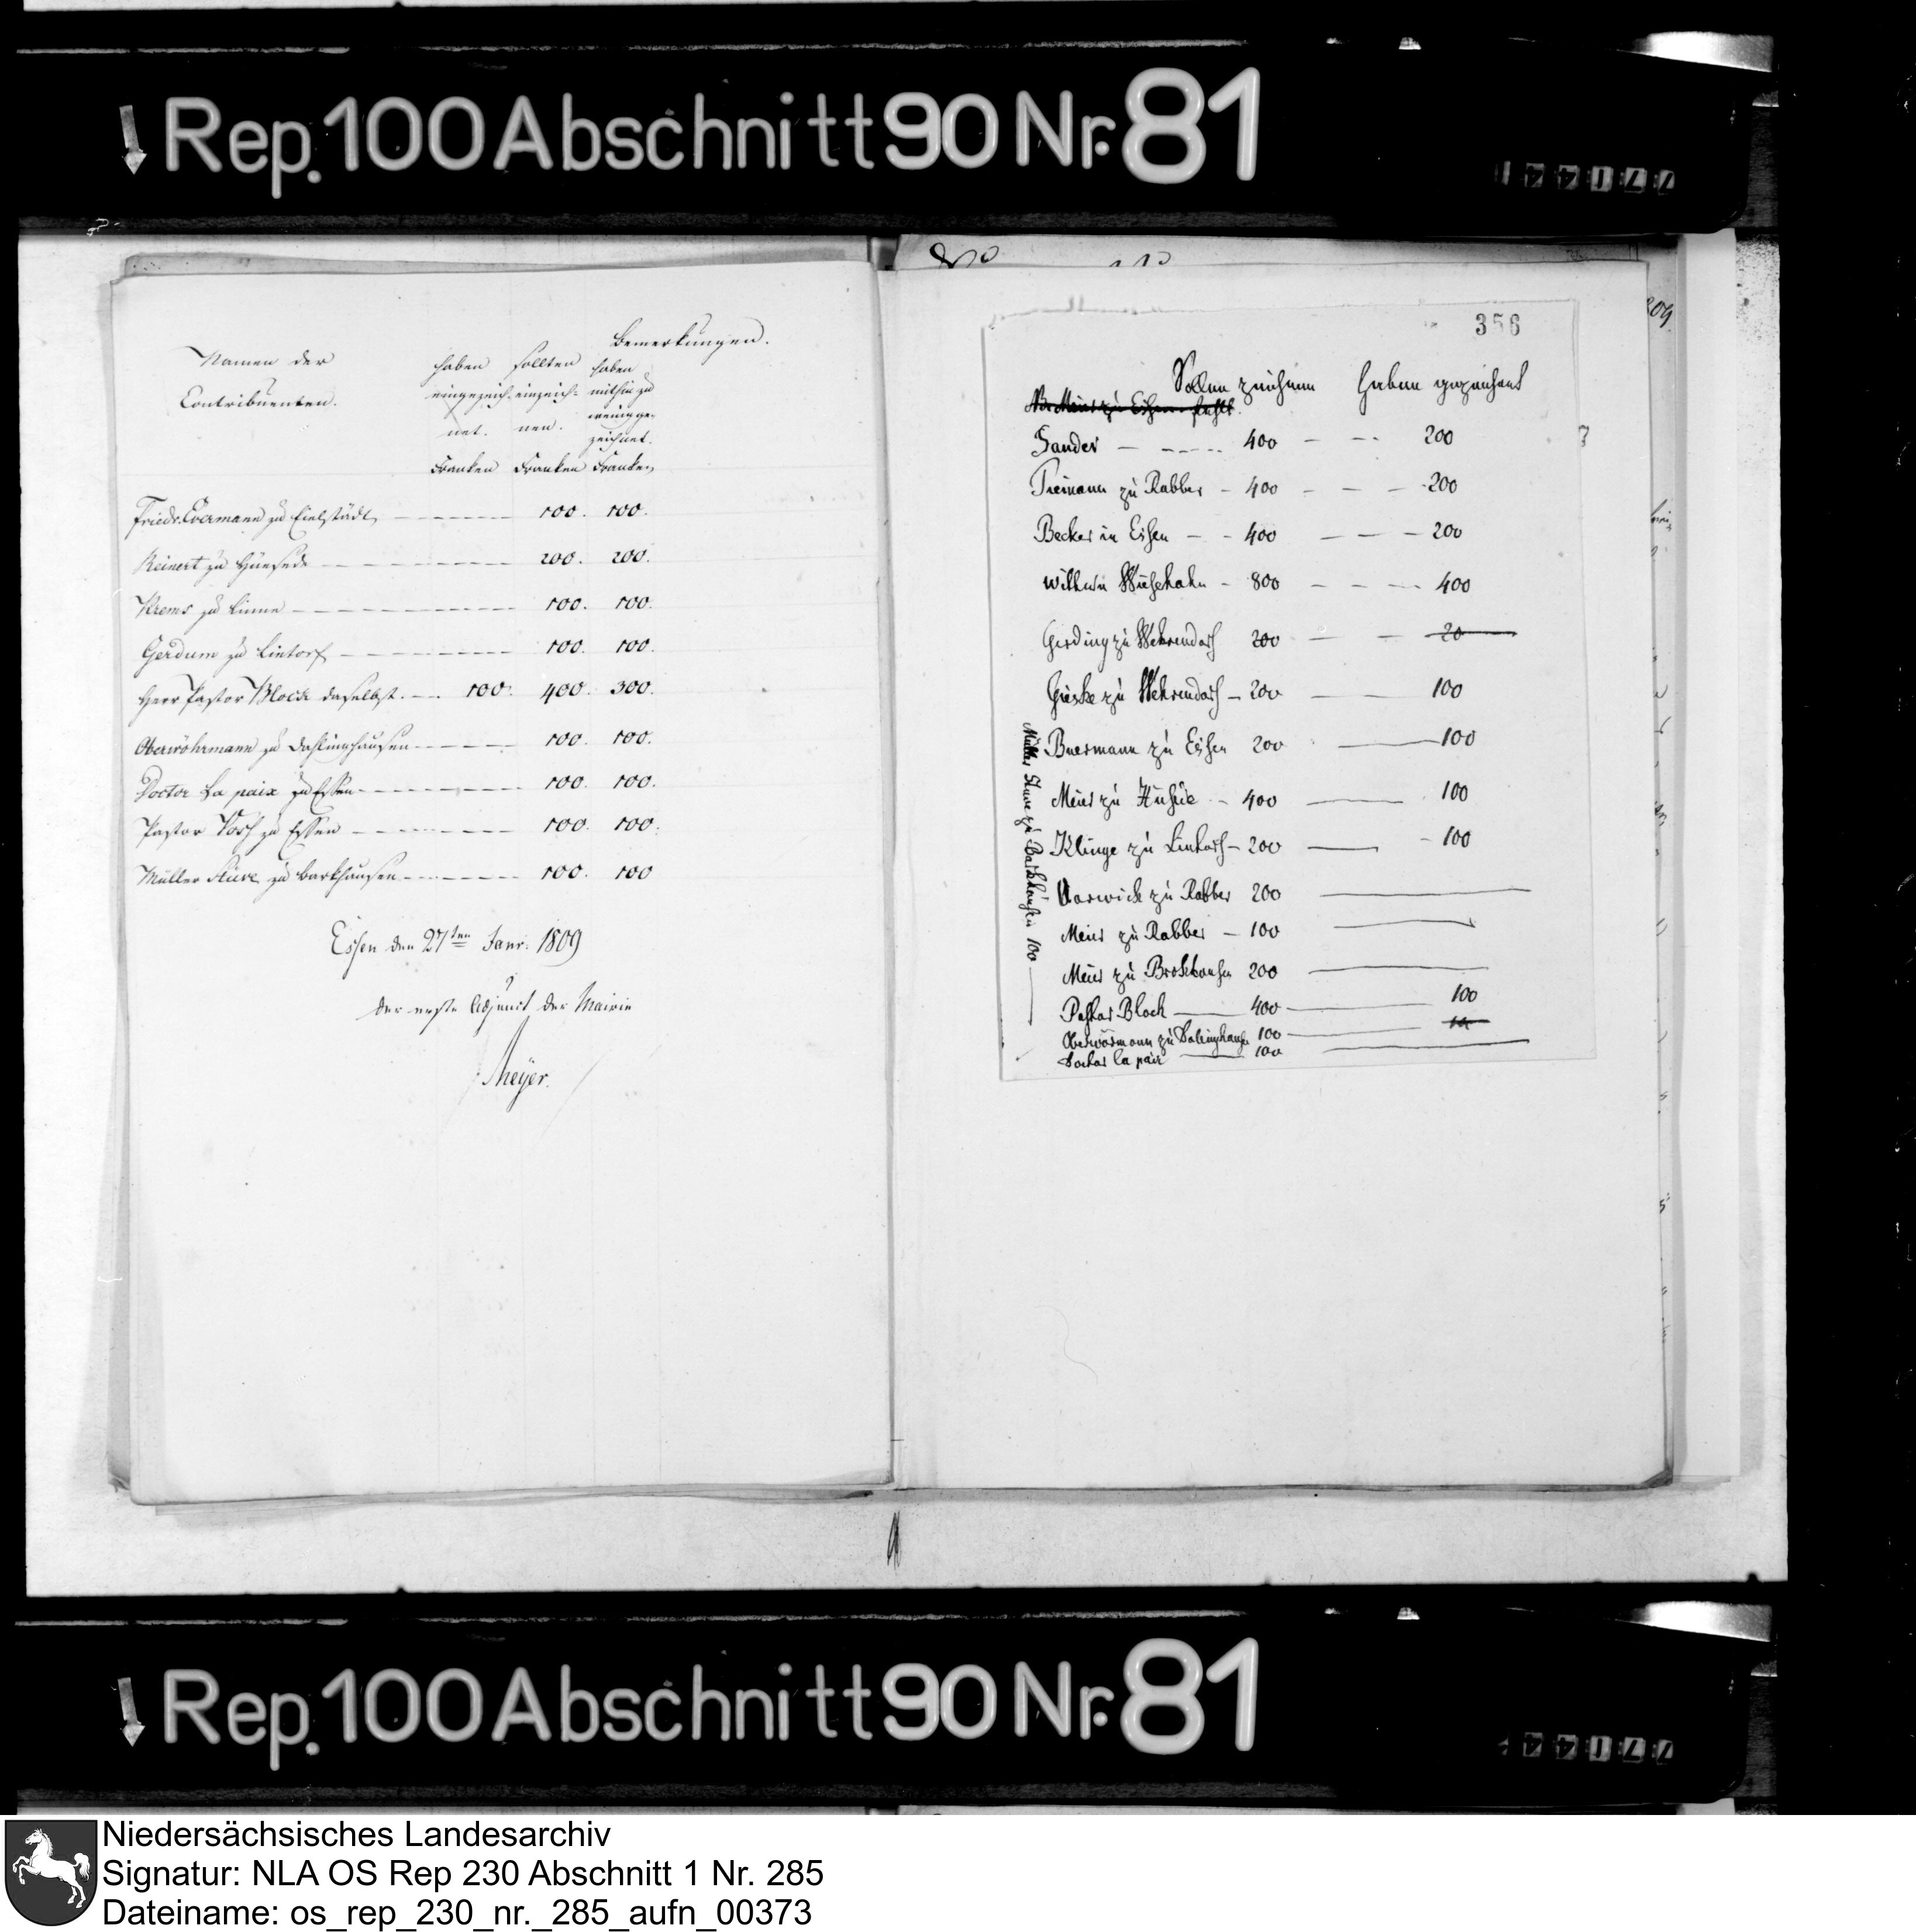 Rep. 100 Abschnitt 90 Nr. 81
Bemerkungen.
Namen der
Contribuenten.
haben eingezeich-net.
sollten einzeich-nen.
haben mithin zu wenig ge-zeichnet.
Franken Franken Franken
Friedr. Evermann zu Eielstädt 100. 100.
Reinert zu Hüsede 200. 200.
Krems zu Linne 100. 100.
Gerdum zu Lintorf 100. 100.
Herr Pastor Block daselbst. 100. 400. 300.
Oberwöhrmann zu Dahlinghausen 100. 100.
Doctor La paix zu Essen 100. 100.
Pastor Vosh zu Essen 100. 100.
Müller Stüve zu Barkhausen 100. 100
Essen den 27ten Janr. 1809
der erste Adjunct der Mairie
Meyer.
356
Sollen zeichnen Haben gezeichnet
NB. Meier zu Essen fehlt.
Sander 400 200
Tiemann zu Rabber 400 200
Becker in Essen 400 200
Wilhelm Wüsehahn 800 400
Gerding zu Wehrendorf 200 20
Gieske zu Wehrendorf 200 100
Buermann zu Essen 200 100
Meier zu Hüsede 400 100
Klinge zu Lintorf 200 100
Varwick zu Rabber 200
Meier zu Rabber 100
Meier zu Brokhausen 200
Pastor Block 400 100
Oberwörmann zu Dalinghausen 100
Doctor la paix 100
Müller Stuve zu Barkhausen 100
Rep. 100 Abschnitt 90 Nr. 81
Niedersächsisches Landesarchiv
Signatur: NLA OS Rep 230 Abschnitt 1 Nr. 285
Dateiname: os_rep_230_nr._285_aufn_00373